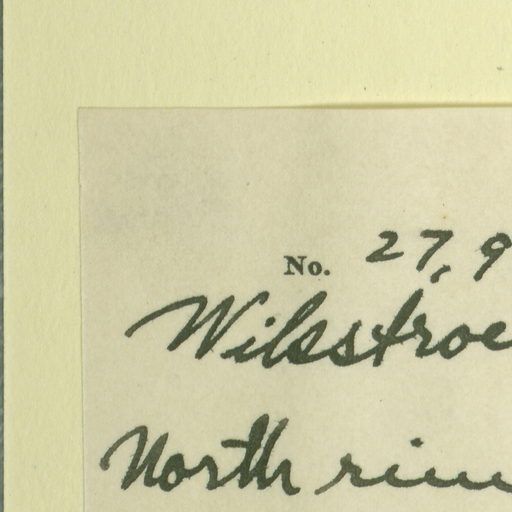 No. 27,9
Wilsstroe
North rim